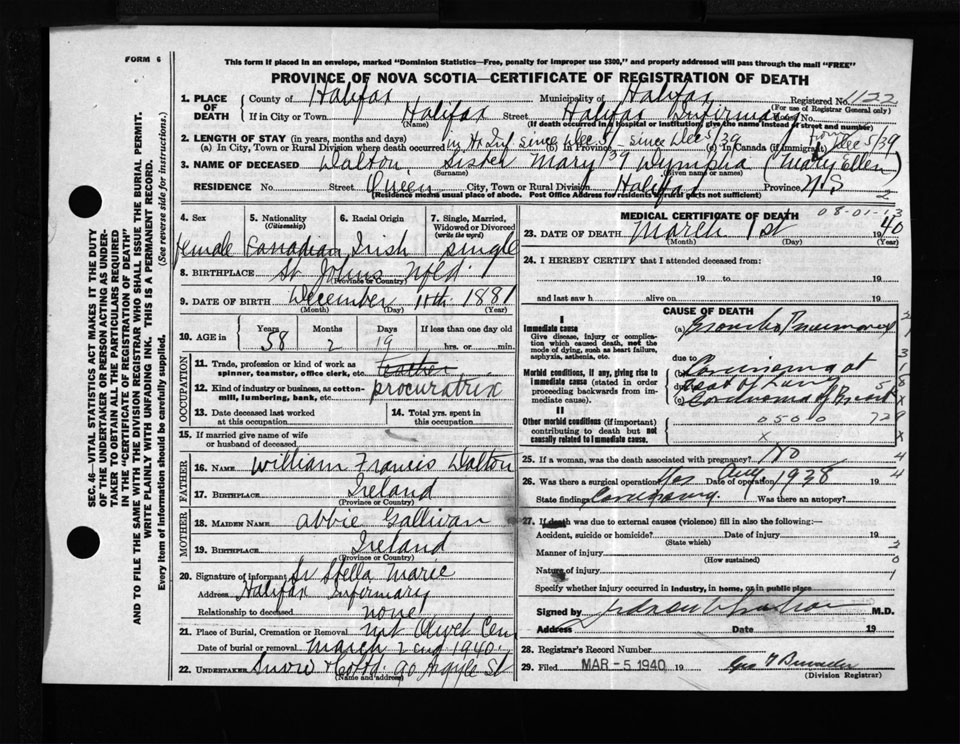 FORM 6
This form if placed in an envelope, marked "Dominion Statistics—Free, penalty for improper use $300," and properly addressed will pass through the mail "FREE"
PROVINCE OF NOVA SCOTIA—CERTIFICATE OF REGISTRATION OF DEATH
SEC. 46—VITAL STATISTICS ACT MAKES IT THE DUTY
OF THE UNDERTAKER OR PERSON ACTING AS UNDER-
TAKER TO OBTAIN ALL THE PARTICULARS REQUIRED
IN THE "CERTIFICATE OF REGISTRATION OF DEATH"
AND TO FILE THE SAME WITH THE DIVISION REGISTRAR WHO SHALL ISSUE THE BURIAL PERMIT.
WRITE PLAINLY WITH UNFADING INK. THIS IS A PERMANENT RECORD.
Every item of information should be carefully supplied. (See reverse side for instructions.)
1. PLACE OF DEATH County of Halifax Municipality of Halifax Registered No. 1122
(For use of Registrar General only)
If in City or Town Halifax Street Halifax Infirmary
(Name) (If death occurred in a hospital or institution, give the name instead of street and number)
2. LENGTH OF STAY (in years, months and days)
(a) In City, Town or Rural Division where death occurred in Hx Inf since Dec 5/39 (b) In Province since Dec 5/39 (c) In Canada (if immigrant) Dec 5/39
3. NAME OF DECEASED Dalton, Sister Mary Nympha (Mary Ellen)
(Surname) (Given name or names)
RESIDENCE No. Street Queen City, Town or Rural Division Halifax Province N.S
(Residence means usual place of abode. Post Office Address for residents of rural parts not sufficient)
4. Sex female
5. Nationality (Citizenship) Canadian
6. Racial Origin Irish
7. Single, Married, Widowed or Divorced (write the word) single
8. BIRTHPLACE St Johns Nfld.
(Province or Country)
9. DATE OF BIRTH December 11th 1881
(Month) (Day) (Year)
10. AGE in Years 58 Months 2 Days 19 If less than one day old hrs. or min.
OCCUPATION
11. Trade, profession or kind of work as spinner, teamster, office clerk, etc. teacher
12. Kind of industry or business, as cotton-mill, lumbering, bank, etc. procuratrix
13. Date deceased last worked at this occupation
14. Total yrs. spent in this occupation
15. If married give name of wife or husband of deceased
FATHER
16. NAME William Francis Dalton
17. BIRTHPLACE Ireland
(Province or Country)
MOTHER
18. MAIDEN NAME Abbie Gallivan
19. BIRTHPLACE Ireland
(Province or Country)
20. Signature of informant Sr Stella Marie
Address Halifax Infirmary
Relationship to deceased none
21. Place of Burial, Cremation or Removal Mt Olivet Cem
Date of burial or removal March 2nd 1940.
22. UNDERTAKER Snow 90 Argyle St
(Name and address)
MEDICAL CERTIFICATE OF DEATH
23. DATE OF DEATH March 1st 1940
(Month) (Day) (Year)
24. I HEREBY CERTIFY that I attended deceased from:
19 to 19
and last saw h alive on 19
CAUSE OF DEATH
I
Immediate cause (a) Pneumonia
Give disease, injury or complication which caused death, not the mode of dying, such as heart failure, asphyxia, asthenia, etc.
due to
Morbid conditions, if any, giving rise to immediate cause (stated in order proceeding backwards from immediate cause). (b) Carcinoma of
due to
(c) Carcinoma of Breast
II
Other morbid conditions (if important) contributing to death but not causally related to immediate cause.
25. If a woman, was the death associated with pregnancy? No
26. Was there a surgical operation? Yes Date of operation Aug 1938
State findings Was there an autopsy?
27. If death was due to external causes (violence) fill in also the following:—
Accident, suicide or homicide? Date of injury 19
(State which)
Manner of injury
(How sustained)
Nature of injury
Specify whether injury occurred in industry, in home, or in public place
Signed by M.D.
Address Date 19
28. Registrar's Record Number
29. Filed MAR - 5 1940 19
(Division Registrar)